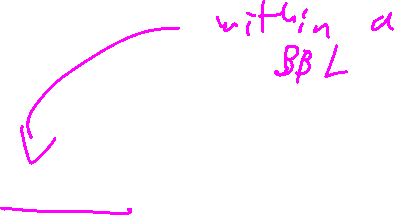 within a
BBL